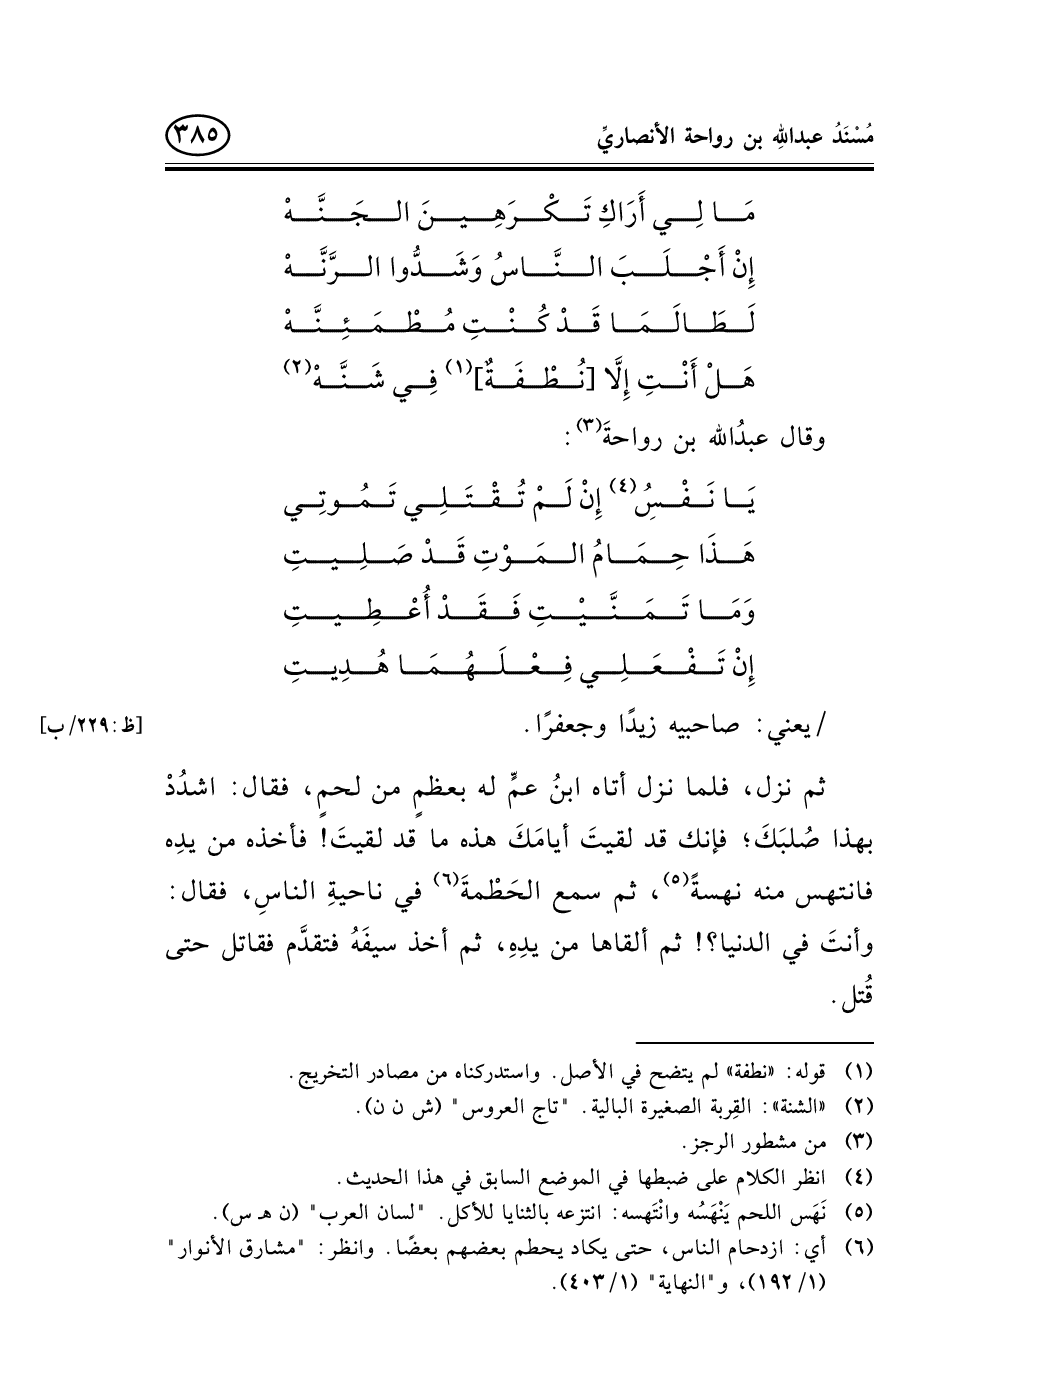 مُسْنَدُ عبداللهِ بن رواحة الأنصاريِّ ٣٨٥
مَا لِي أَرَاكِ تَكْرَهِينَ الجَنَّهْ
إِنْ أَجْلَبَ النَّاسُ وَشَدُّوا الرَّنَّهْ
لَطَالَمَا قَدْ كُنْتِ مُطْمَئِنَّهْ
هَلْ أَنْتِ إِلَّا [نُطْفَةٌ](١) فِي شَنَّهْ(٢)
وقال عبدُالله بن رواحةَ(٣):
يَا نَفْسُِ(٤) إِنْ لَمْ تُقْتَلِي تَمُوتِي
هَذَا حِمَامُ المَوْتِ قَدْ صَلِيتِ
وَمَا تَمَنَّيْتِ فَقَدْ أُعْطِيتِ
إِنْ تَفْعَلِي فِعْلَهُمَا هُدِيتِ
/يعني: صاحبيه زيدًا وجعفرًا. [ظ:٢٢٩/ب]
ثم نزل، فلما نزل أتاه ابنُ عمٍّ له بعظمٍ من لحمٍ، فقال: اشدُدْ
بهذا صُلبَكَ؛ فإنك قد لقيتَ أيامَكَ هذه ما قد لقيتَ! فأخذه من يدِه
فانتهس منه نهسةً(٥)، ثم سمع الحَطْمةَ(٦) في ناحيةِ الناسِ، فقال:
وأنتَ في الدنيا؟! ثم ألقاها من يدِهِ، ثم أخذ سيفَهُ فتقدَّم فقاتل حتى
قُتل.
(١) قوله: «نطفة» لم يتضح في الأصل. واستدركناه من مصادر التخريج.
(٢) «الشنة»: القِربة الصغيرة البالية. "تاج العروس" (ش ن ن).
(٣) من مشطور الرجز.
(٤) انظر الكلام على ضبطها في الموضع السابق في هذا الحديث.
(٥) نَهَس اللحم يَنْهَسُه وانْتَهسه: انتزعه بالثنايا للأكل. "لسان العرب" (ن هـ س).
(٦) أي: ازدحام الناس، حتى يكاد يحطم بعضهم بعضًا. وانظر: "مشارق الأنوار"
(١/ ١٩٢)، و"النهاية" (١/ ٤٠٣).